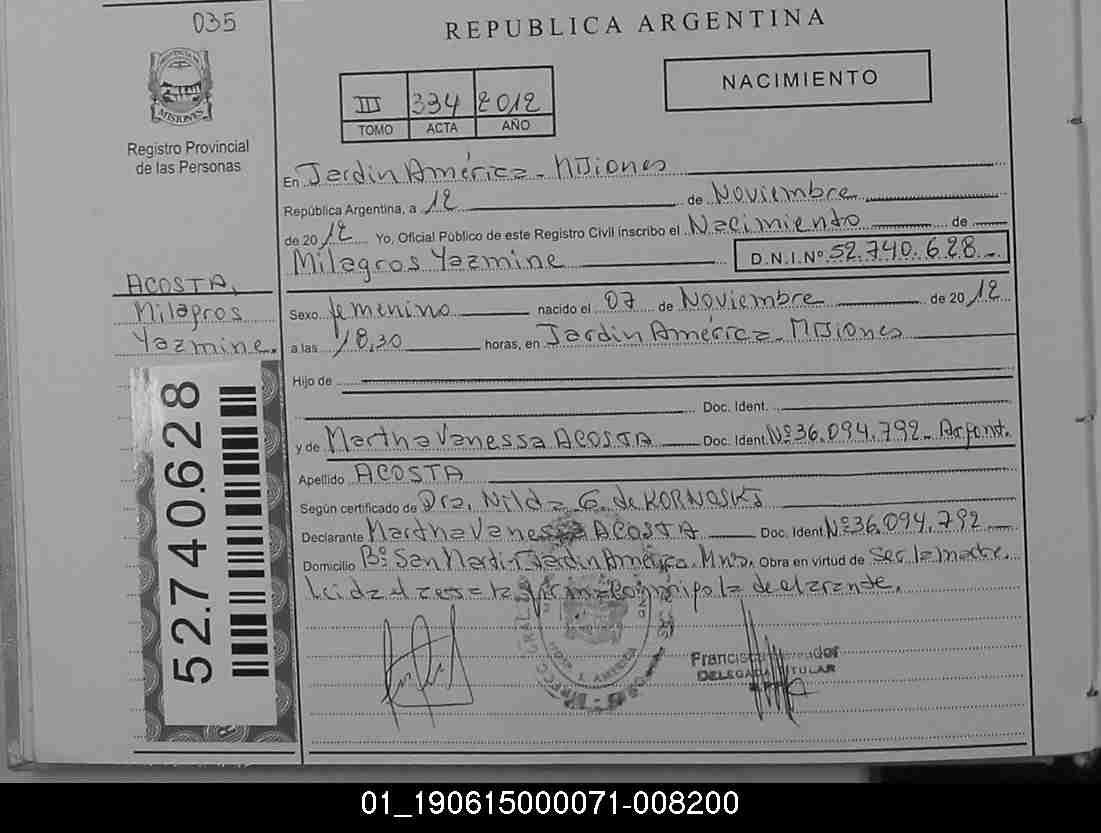 035
REPUBLICA ARGENTINA
PROVINCIA
MISIONES
Registro Provincial
de las Personas
III 334 2012
TOMO ACTA AÑO
NACIMIENTO
En Jardin América - Misiones
República Argentina, a 12 de Noviembre
de 2012 Yo, Oficial Público de este Registro Civil inscribo el Nacimiento de
Milagros Yazmine D.N.I. Nº 52.740.628.-
ACOSTA,
Milagros
Yazmine.
Sexo femenino nacido el 07 de Noviembre de 2012
a las 18,30 horas, en Jardin América - Misiones
Hijo de
Doc. Ident.
y de Martha Vanessa ACOSTA Doc. Ident. Nº 36.094.792 - Argent.
Apellido ACOSTA
Según certificado de Dra. Nilda G. de KORNOSKI
Declarante Martha Vanessa ACOSTA Doc. Ident. Nº 36.094.792
Domicilio Bº San Martin Jardin América. Mns. Obra en virtud de ser la madre.
Leida el la declarante.
52.740.628
Francisc
DELEGAD TITULAR
01_190615000071-008200